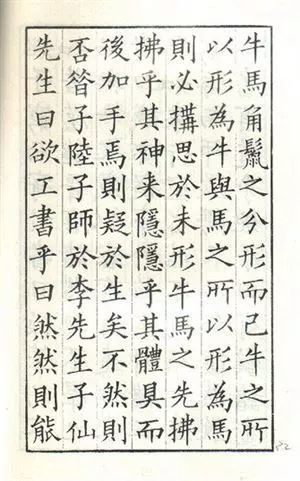 牛馬角鬣之分形而已牛之所
以形為牛與馬之所以形為馬
則必搆思於未形牛馬之先拂
拂乎其神来隱隱乎其體具而
後加手焉則疑於生矣不然則
否昝子陸子師於李先生子仙
先生曰欲工書乎曰然然則能